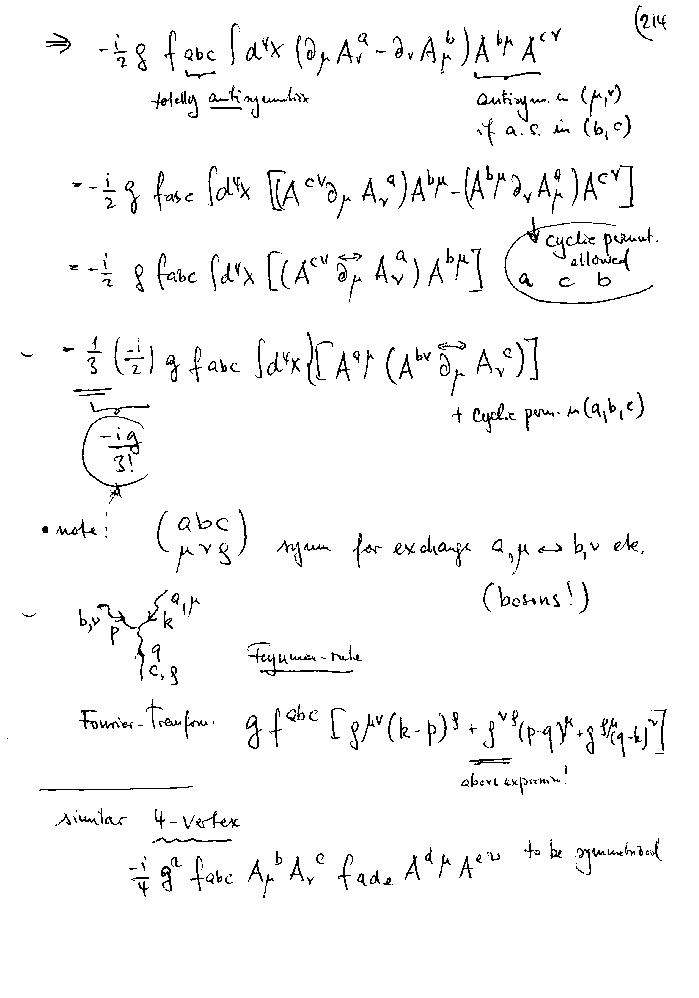 (214
⇒ -i/2 g f_abc ∫d⁴x (∂_μ A_ν^a - ∂_ν A_μ^b) A^bμ A^cν
totally antisymmetric
antisym. in (μ,ν)
if a.s. in (b,c)
= -i/2 g f_abc ∫d⁴x [(A^cν ∂_μ A_ν^a) A^bμ - (A^bμ ∂_ν A_μ^a) A^cν]
↓ cyclic permut.
allowed
= -i/2 g f_abc ∫d⁴x [(A^cν ∂↔_μ A_ν^a) A^bμ]
a c b
= 1/3 (-i/2) g f_abc ∫d⁴x {[A^aμ (A^bν ∂↔_μ A_ν^c)]
+ cyclic perm. in (a,b,c)
-ig/3!
• note: (abc / μνρ) symm for exchange a,μ ↔ b,ν etc.
(bosons!)
a,μ
b,ν
p k
q
c,ρ
Feynman-rule
Fourier-Transform. g f^abc [g^μν (k-p)^ρ + g^νρ (p-q)^μ + g^ρμ (q-k)^ν]
above expression!
similar 4-vertex
-i/4 g² f_abc A_μ^b A_ν^c f_ade A^dμ A^eν to be symmetrized